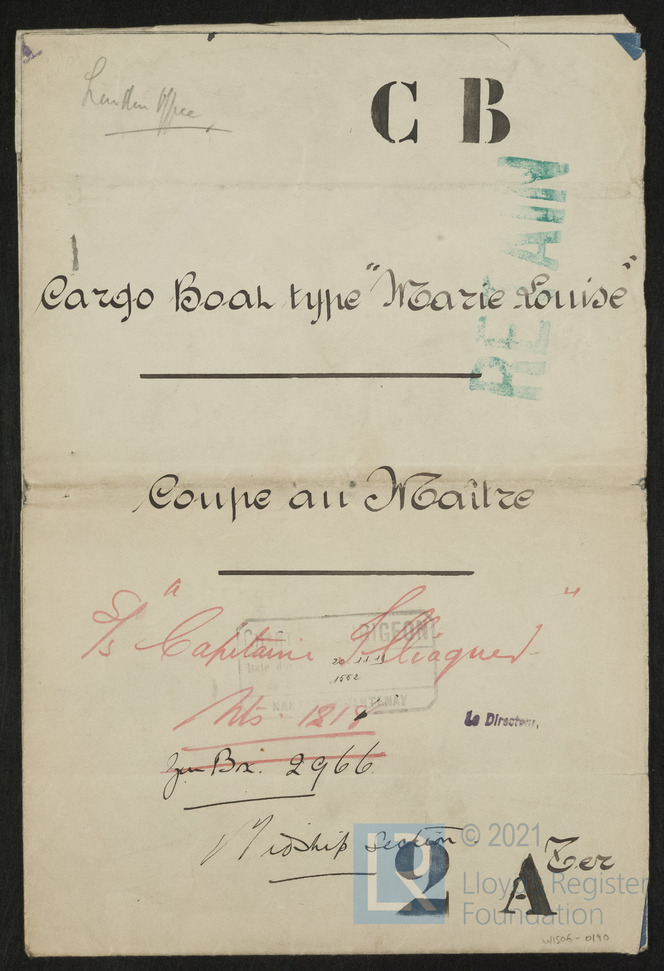 London Office
C B
RETAIN
Cargo Boat type "Marie Louise"
Coupe au Maître
S/s "Capitaine
DIGEON
1552
NANTENAY
Nts. 1818
Le Directeur,
Bx. 2966
Midship Section
2 A Ter
© 2021
LR
Lloyd's Register
Foundation
W1506-0190